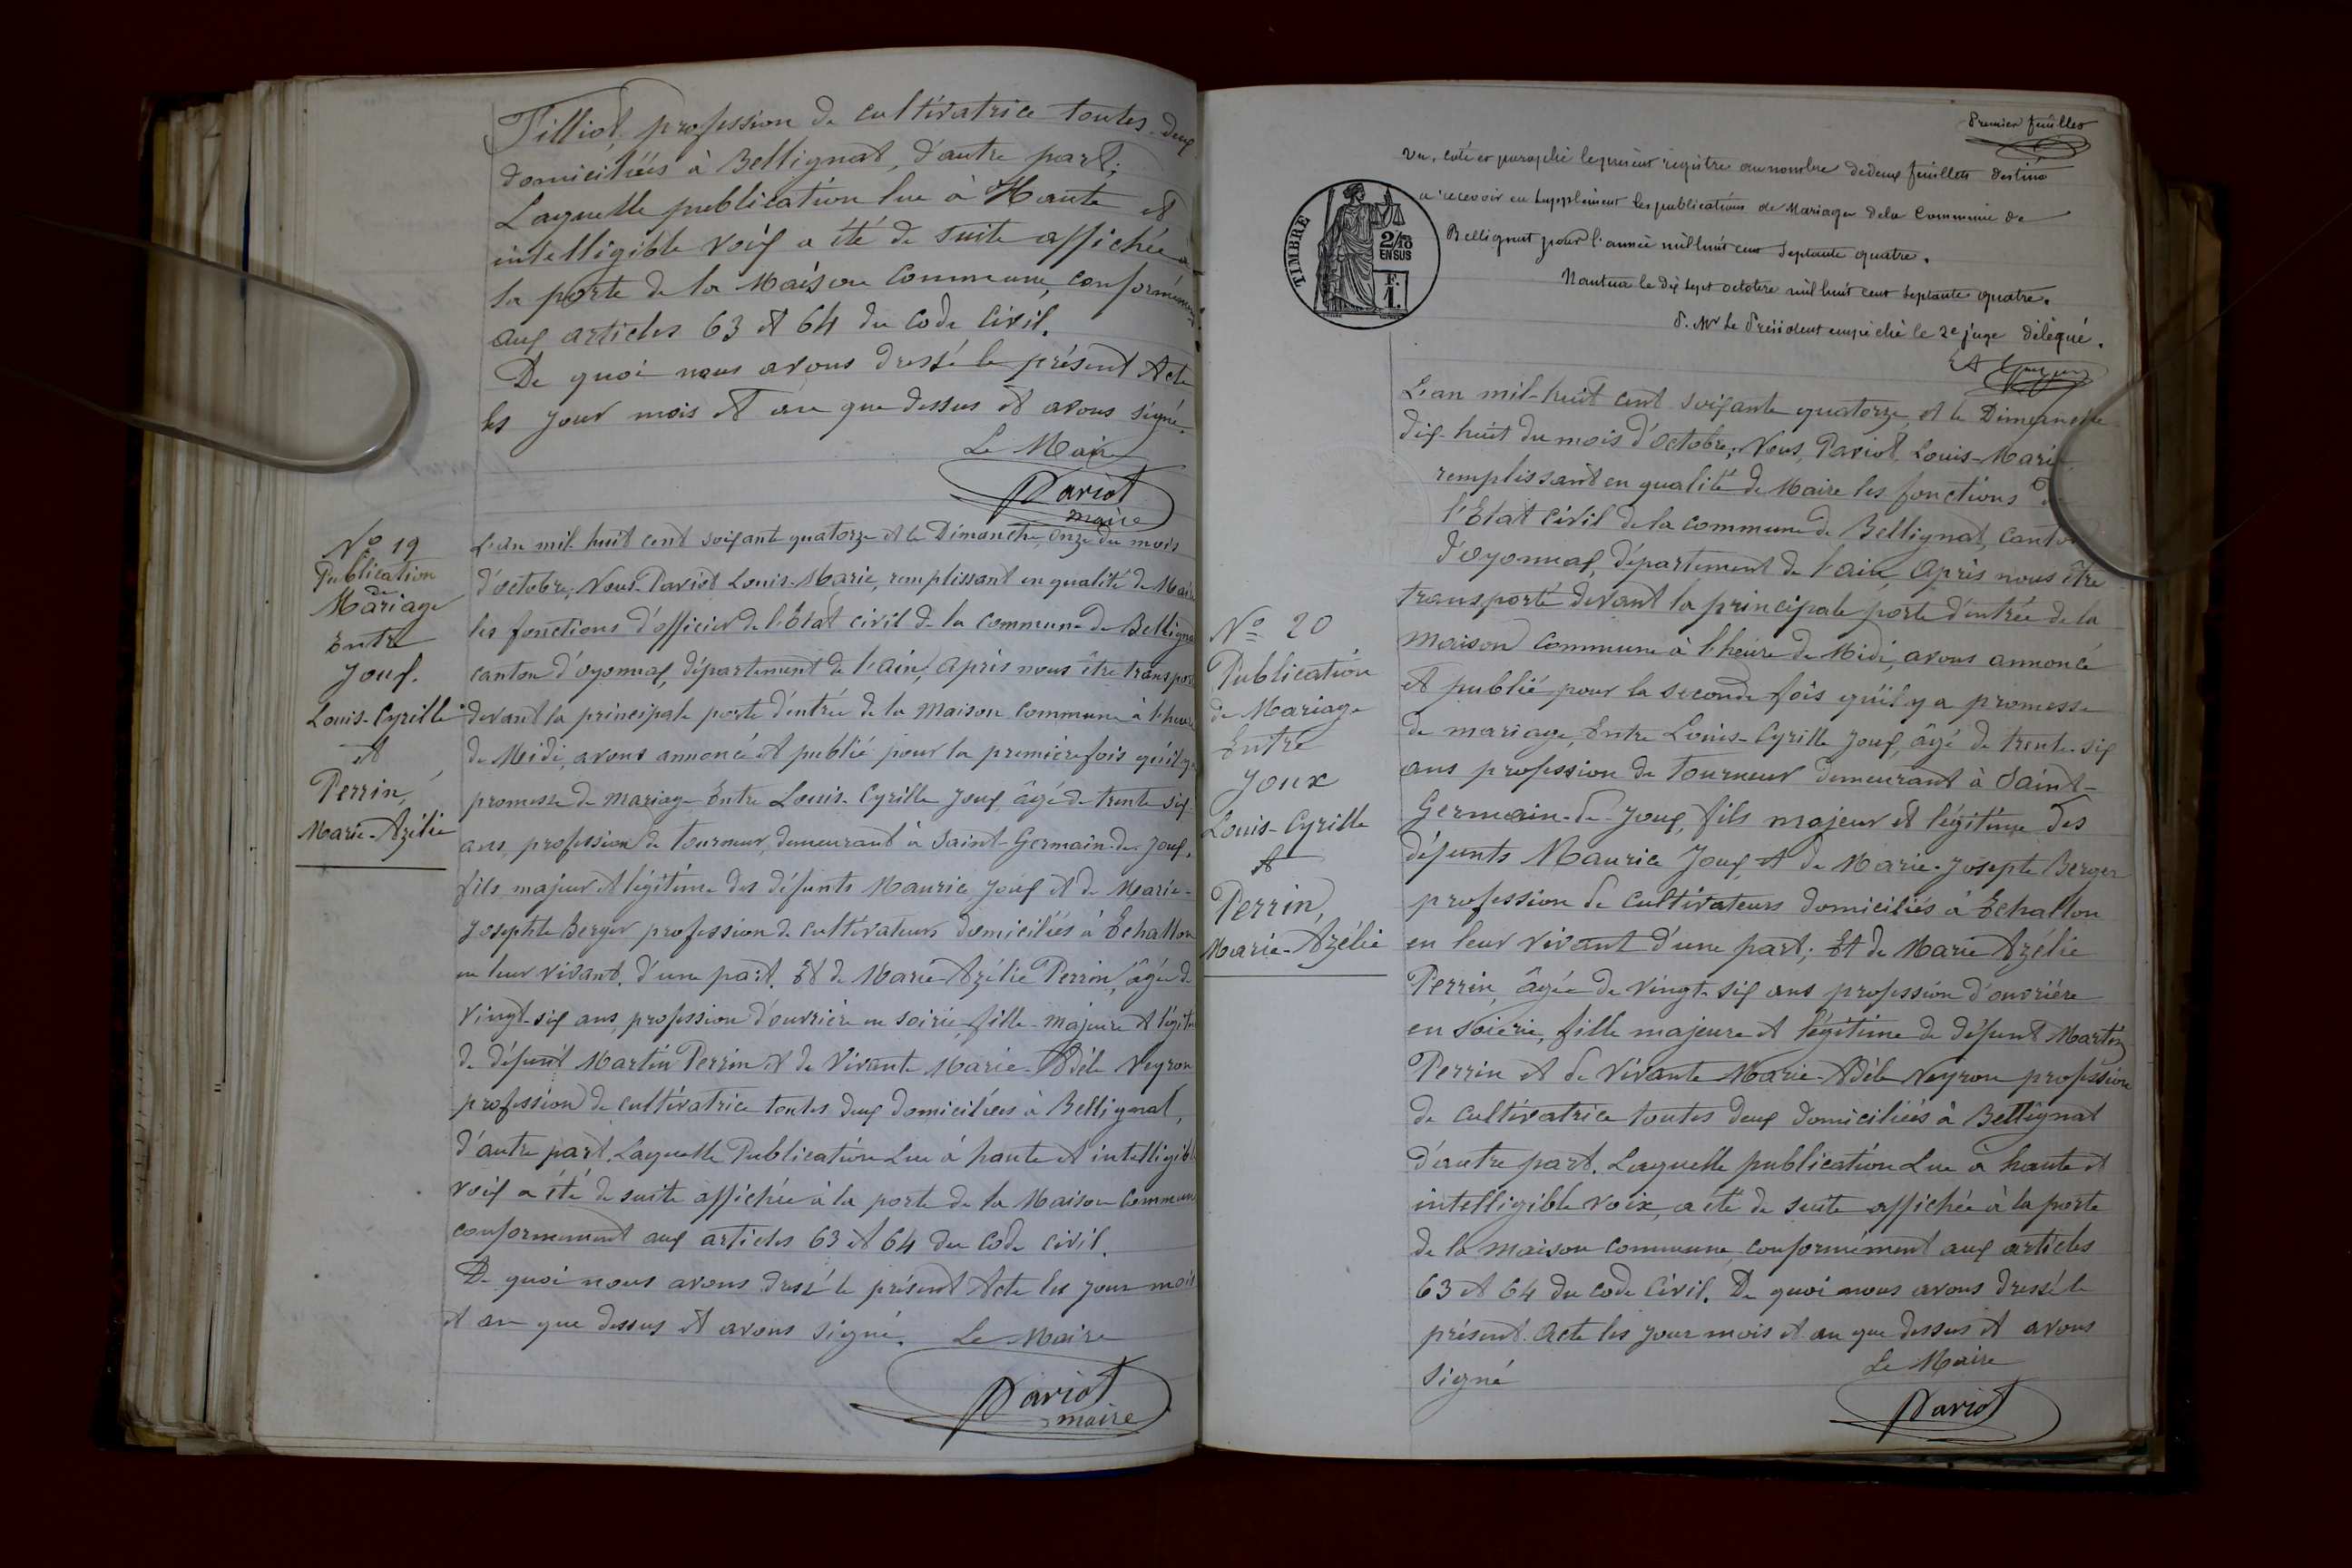 Tilliot, profession de cultivatrice toutes deux
domiciliées à Bellignat, d'autre part;
Laquelle publication lue à Haute et
intelligible voix a été de suite affichée à
la porte de la Maison Commune, conformément
aux articles 63 et 64 du Code Civil.
De quoi nous avons dressé le présent Acte
les jour mois et an que dessus et avons signé.
Le Maire
Pariot
maire
No 19
Publication
de
Mariage
Entre
Joux.
Louis-Cyrille
et
Perrin,
Marie-Azélie
L'an mil-huit cent soixante quatorze et le Dimanche, Onze du mois
d'octobre, Nous Pariot Louis-Marie, remplissant en qualité de Maire
les fonctions d'officier de l'Etat civil de la commune de Bellignat
canton d'oyonnax, département de l'ain, Après nous être transporté
devant la principale porte d'entrée de la Maison Commune à l'heure
de Midi, avons annoncé et publié pour la première fois qu'il y a
promesse de mariage Entre Louis-Cyrille Joux, âgé de trente six
ans, profession de Tourneur, demeurant à Saint-Germain-de-Joux,
fils majeur et légitime des défunts Maurice Joux et de Marie-
Josephte Berger profession de cultivateurs domiciliés à Echallon
en leur vivant. d'une part. Et de Marie-Azélie Perrin, âgée de
vingt-six ans, profession d'ouvrière en soirie, fille-majeure et légitime
de défunt Martin Perrin et de Vivante Marie-Adèle Neyron
profession de cultivatrice toutes deux domiciliées à Bellignat,
d'autre part. Laquelle Publication Lue à haute et intelligible
voix a été de suite affichée à la porte de la Maison Commune
conformement aux articles 63 et 64 du Code civil.
De quoi nous avons dressé le présent Acte les jour mois
et an que dessus et avons signé. Le Maire
Pariot
maire
Premier feuillet
Vu, coté et paraphé le présent registre au nombre de deux feuillets destiné
a recevoir en supplément les publications de Mariage de la Commune de
Bellignat pour l'année mil huit cent septante quatre.
Nantua le dix sept octobre mil huit cent septante quatre.
P. Mr Le Président empêché le 2e juge délégué.
TIMBRE
2/10
EN SUS
F.
1.
L'an mil-huit cent soixante quatorze, et le Dimanche
dix-huit du mois d'octobre, Nous, Pariot, Louis-Marie
remplissant en qualité de Maire les fonctions de
l'Etat civil de la commune de Bellignat, canton
d'Oyonnax, département de l'ain, Après nous être
transporté devant la principale porte d'entrée de la
Maison Commune à l'heure de Midi, avons annoncé
et publié pour la seconde fois qu'il y a promesse
de mariage, Entre Louis-Cyrille Joux, âgé de trente-six
ans profession de Tourneur demeurant à Saint-
Germain-de-Joux, fils majeur et légitime des
défunts Maurice Joux, et de Marie-Josephte Berger
profession de cultivateurs domiciliés à Echallon
en leur vivant d'une part; Et de Marie Azélie
Perrin, âgée de vingt-six ans profession d'ouvrière
en soierie, fille majeure et légitime de défunt Martin
Perrin et de Vivante Marie-Adèle Neyron profession
de cultivatrice toutes deux domiciliées à Bellignat
d'autre part. Laquelle publication Lue à haute et
intelligible voix, a été de suite affichée à la porte
de la maison commune, conformément aux articles
63 et 64 du Code Civil. De quoi nous avons dressé le
présent. Acte les jour mois et an que dessus et avons
signé
Le Maire
Pariot
No 20
Publication
de Mariage
Entre
Joux
Louis-Cyrille
et
Perrin,
Marie-Azélie